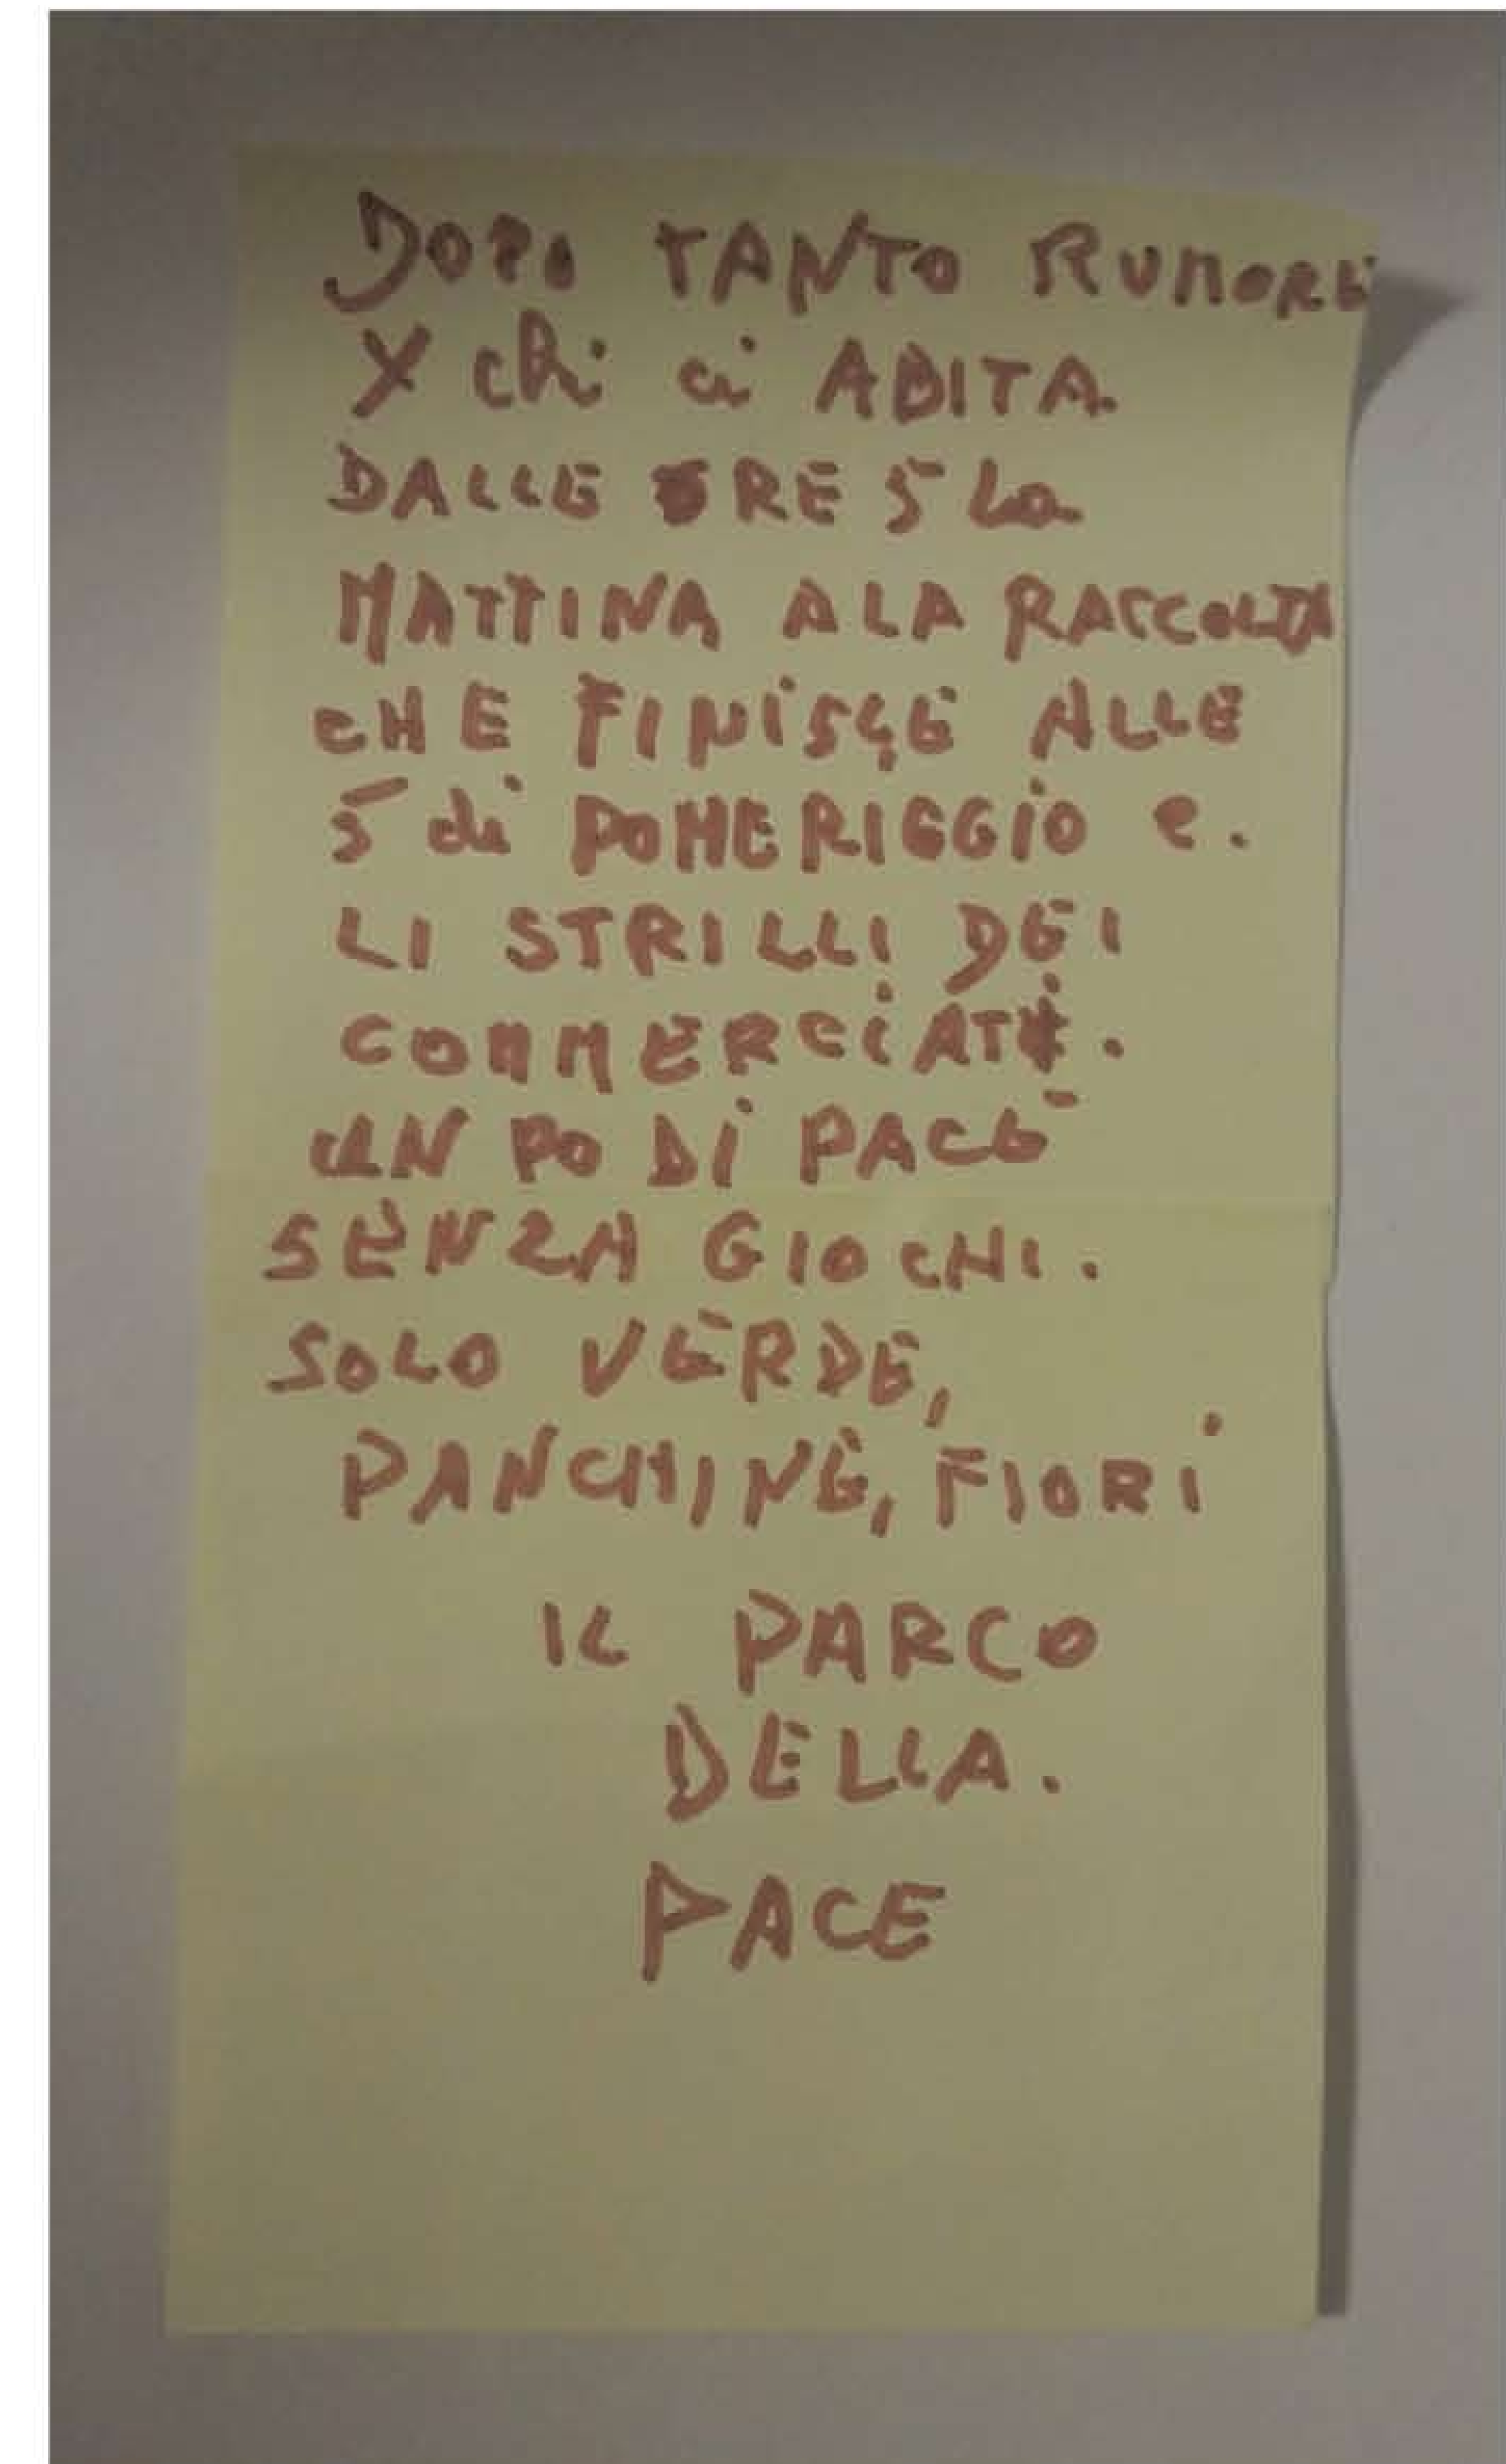 DOPO TANTO RUMORE
X chi ci ABITA.
DALLE ORE 5 La
MATTINA A LA RACCOLTA
CHE FINISCE ALLE
5 di POMERIGGIO e.
LI STRILLI DEI
COMMERCIATI.
UN PO DI PACE
SENZA GIOCHI.
SOLO VERDE,
PANCHINE, FIORI
IL PARCO
DELLA.
PACE